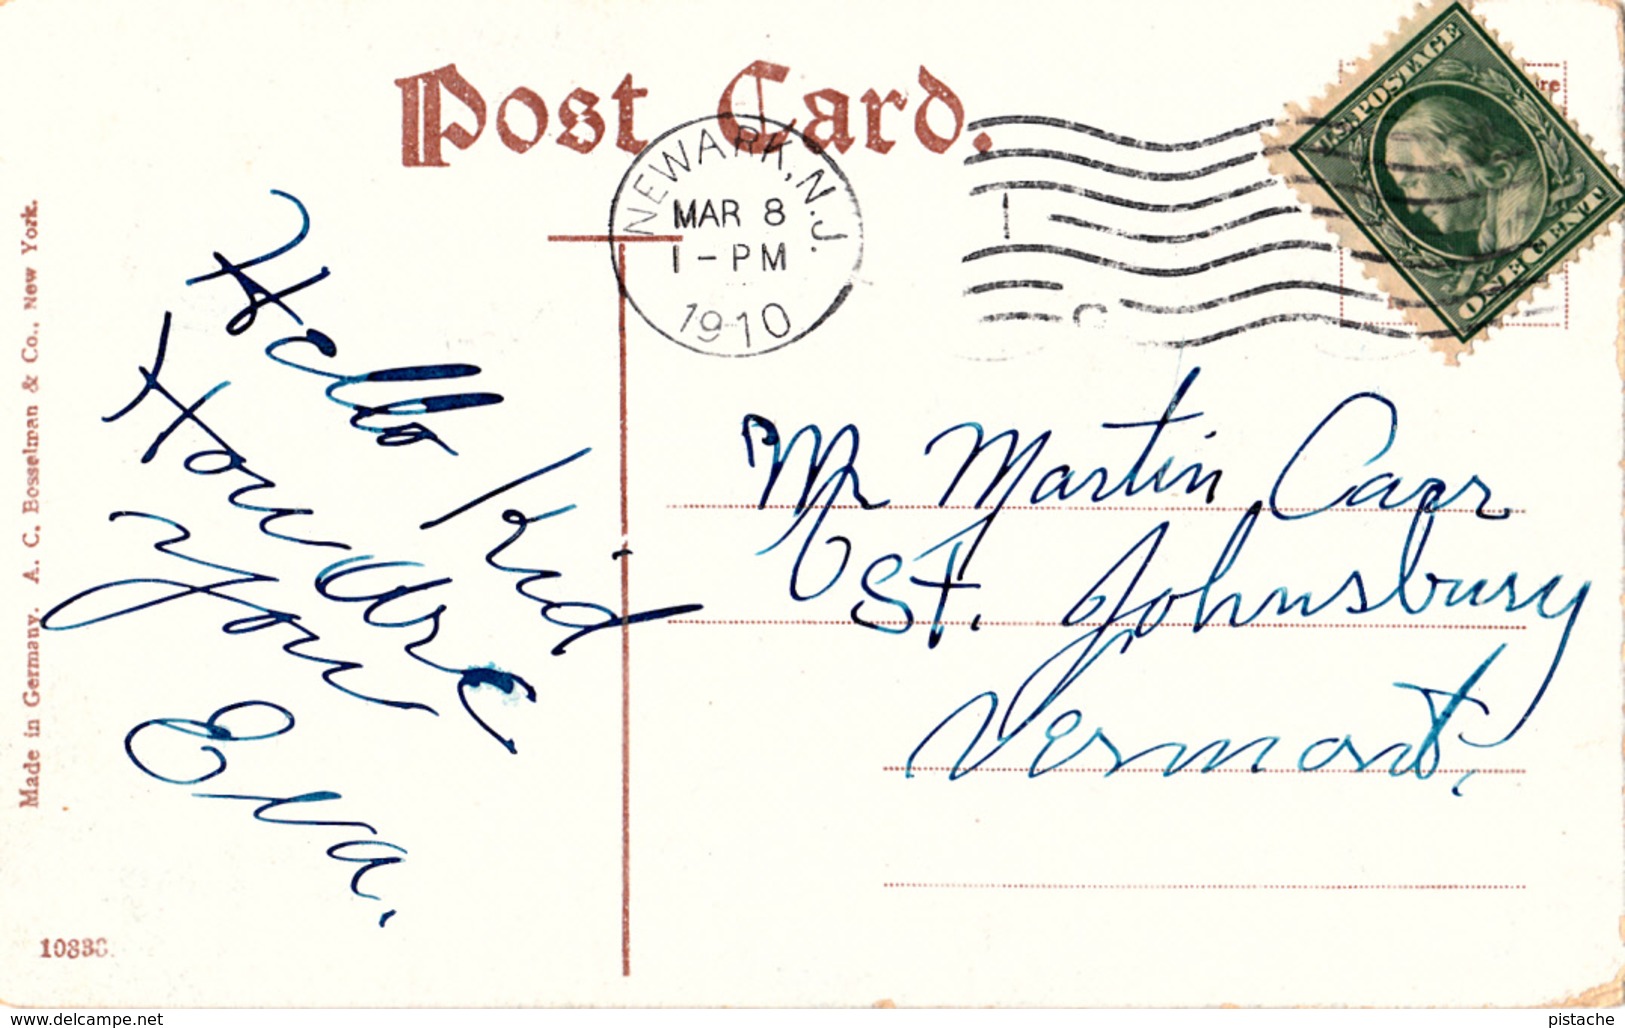 Post Card.
NEWARK, N.J.
MAR 8
1-PM
1910
U.S. POSTAGE
ONE CENT
Hello Kid
How are
You
Eva.
Mr Martin Carr
St. Johnsbury
Vermont.
Made in Germany. A. C. Bosselman & Co., New York.
www.delcampe.net
pistache